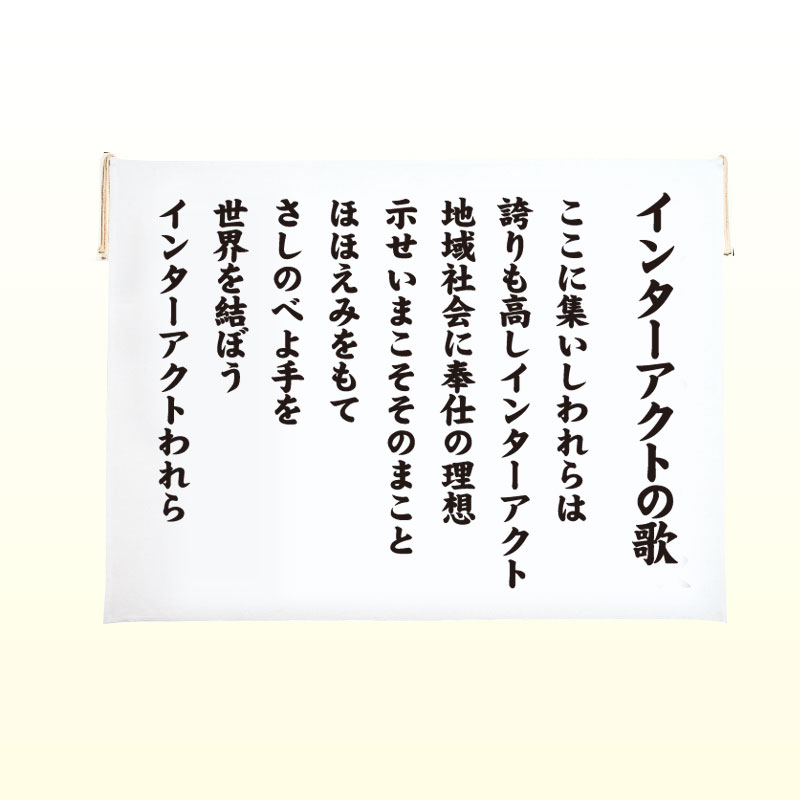 インターアクトの歌
ここに集いしわれらは
誇りも高しインターアクト
地域社会に奉仕の理想
示せいまこそそのまこと
ほほえみをもて
さしのべよ手を
世界を結ぼう
インターアクトわれら